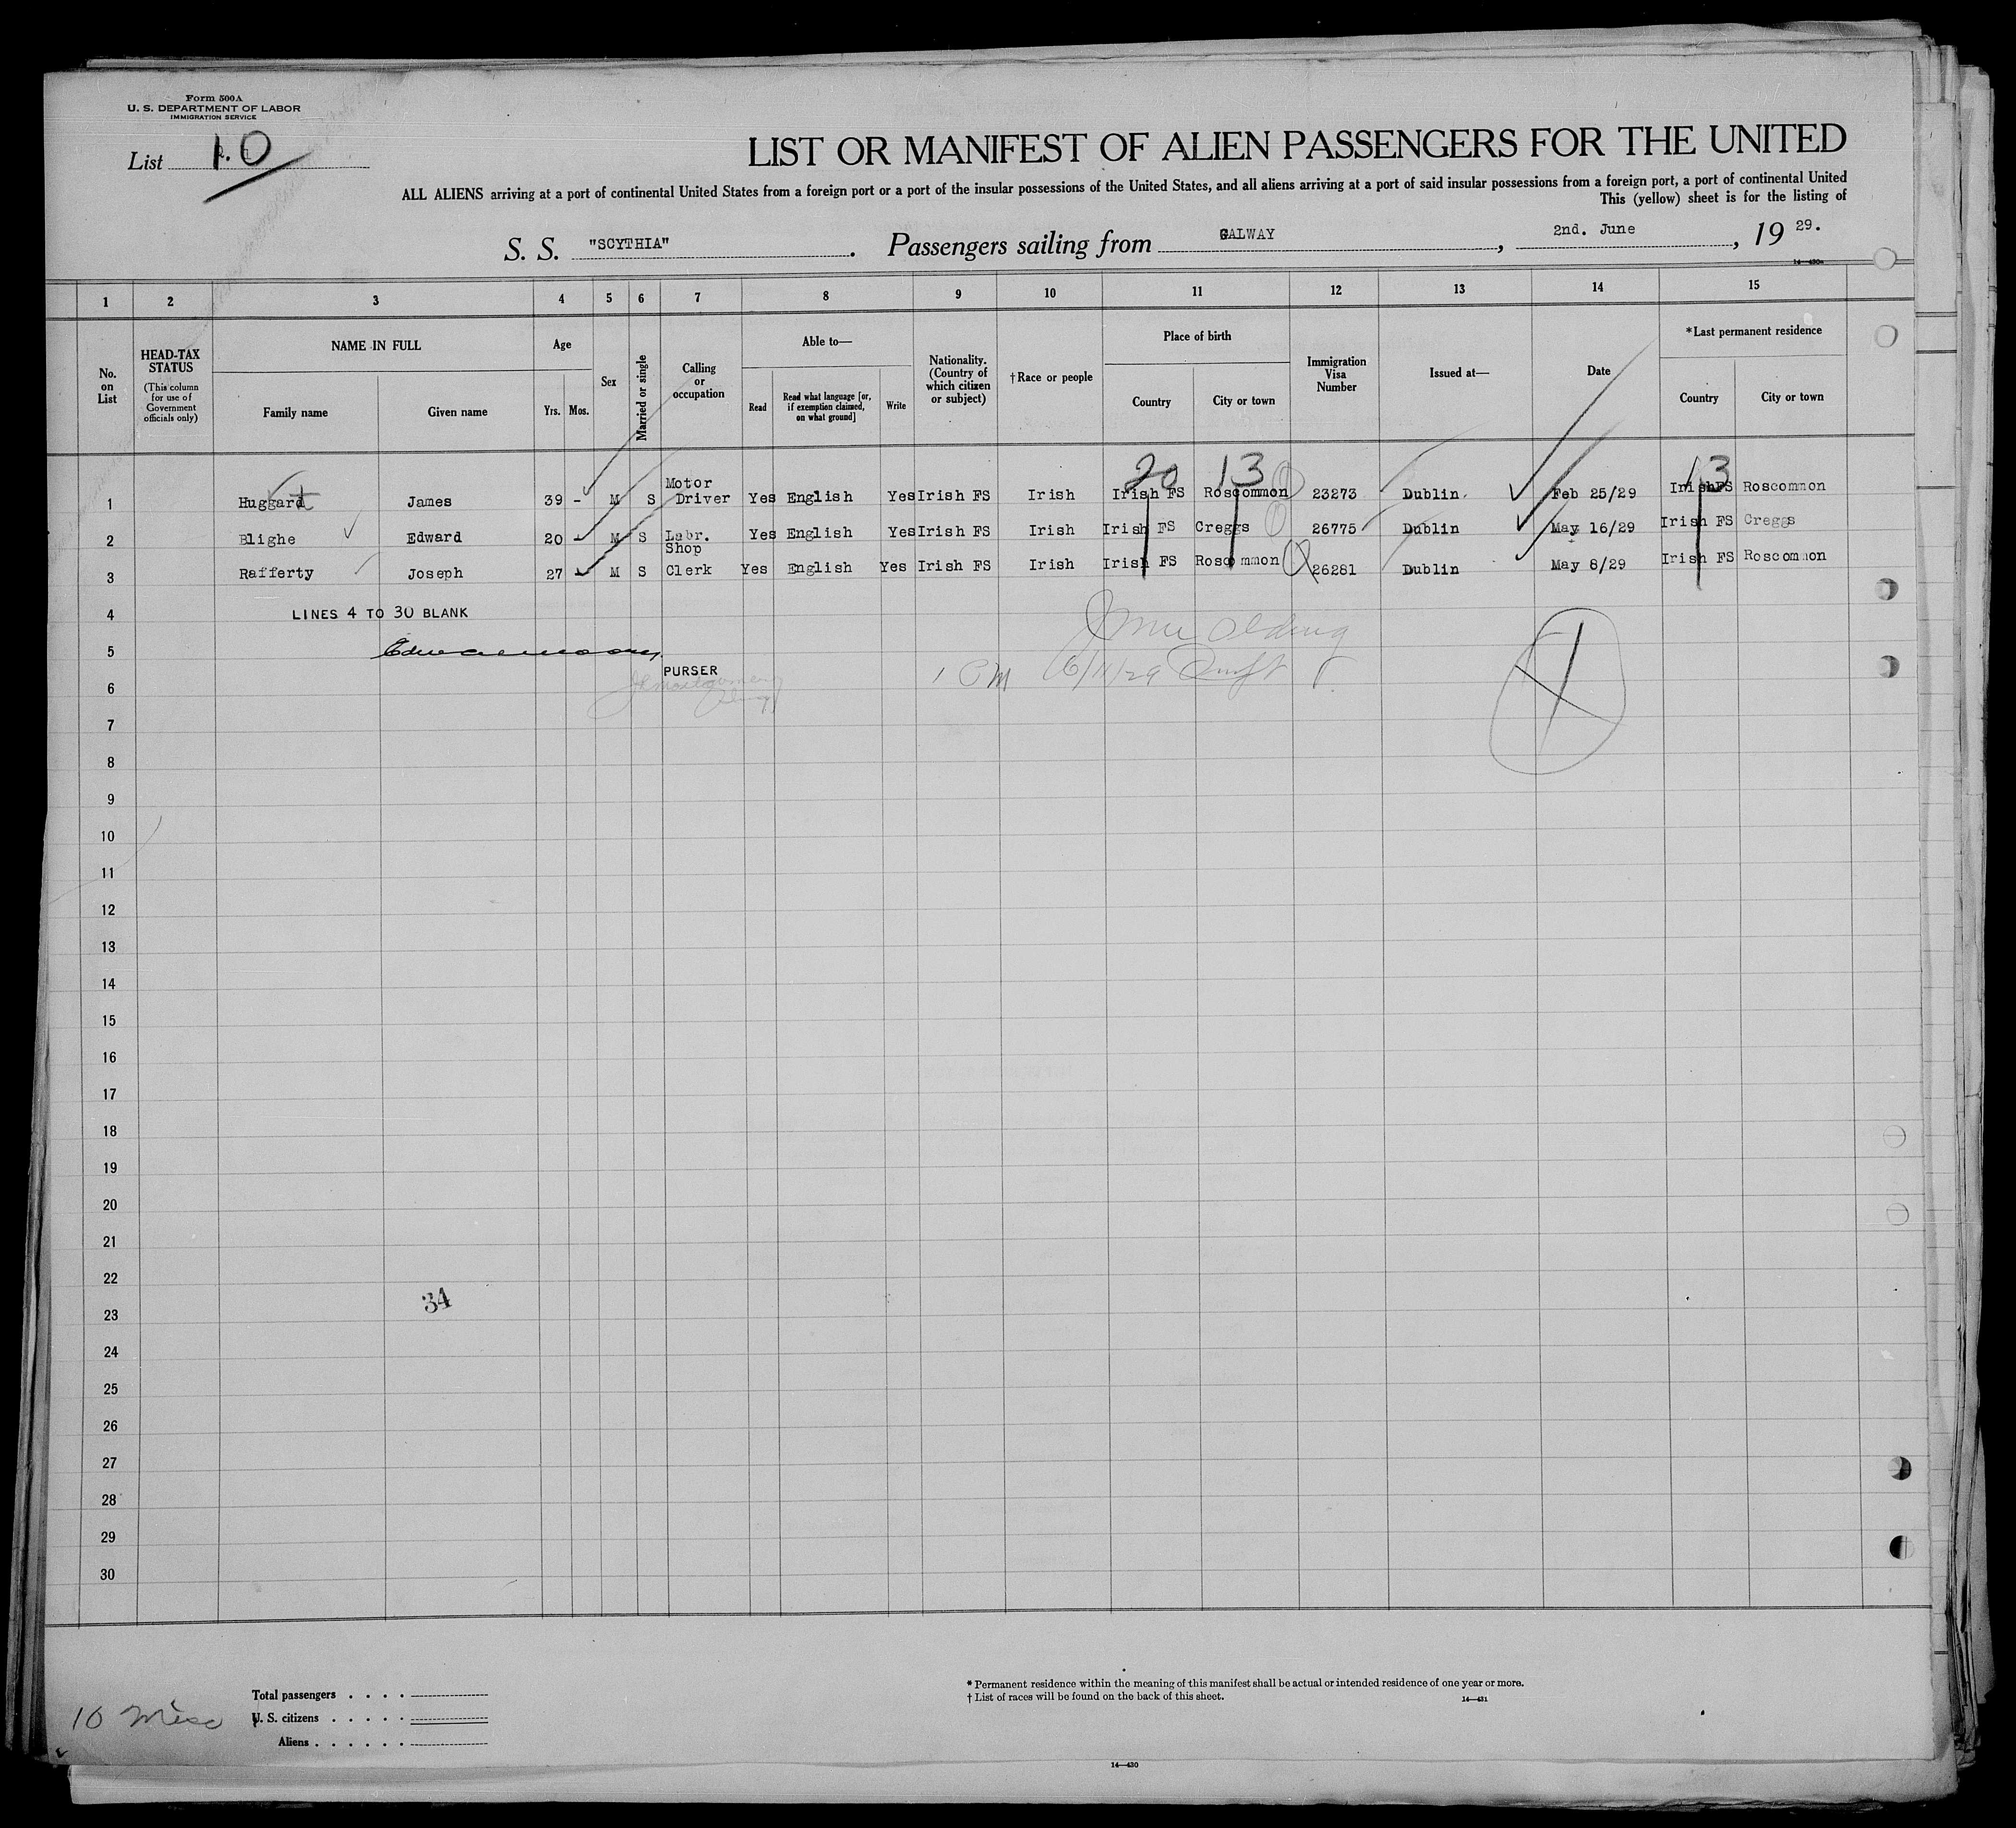 Form 500A
U. S. DEPARTMENT OF LABOR
IMMIGRATION SERVICE
List 10
LIST OR MANIFEST OF ALIEN PASSENGERS FOR THE UNITED
ALL ALIENS arriving at a port of continental United States from a foreign port or a port of the insular possessions of the United States, and all aliens arriving at a port of said insular possessions from a foreign port, a port of continental United
This (yellow) sheet is for the listing of
S. S. "SCYTHIA". Passengers sailing from GALWAY, 2nd. June, 19 29.
14—430a
1 2 3 4 5 6 7 8 9 10 11 12 13 14 15
No. on List
HEAD-TAX STATUS
(This column for use of Government officials only)
NAME IN FULL
Family name Given name
Age
Yrs. Mos.
Sex
Married or single
Calling or occupation
Able to—
Read
Read what language [or, if exemption claimed, on what ground]
Write
Nationality. (Country of which citizen or subject)
†Race or people
Place of birth
Country City or town
Immigration Visa Number
Issued at—
Date
*Last permanent residence
Country City or town
20 13 13
1 Huggard James 39 - M S Motor Driver Yes English Yes Irish FS Irish Irish FS Roscommon 23273 Dublin. Feb 25/29 Irish FS Roscommon
2 Blighe Edward 20 - M S Labr. Yes English Yes Irish FS Irish Irish FS Creggs 26775 Dublin May 16/29 Irish FS Creggs
3 Rafferty Joseph 27 - M S Shop Clerk Yes English Yes Irish FS Irish Irish FS Roscommon 26281 Dublin May 8/29 Irish FS Roscommon
4 LINES 4 TO 30 BLANK
5
PURSER
6 1 PM 6/11/29
7
8
9
10
11
12
13
14
15
16
17
18
19
20
21
22
34
23
24
25
26
27
28
29
30
Total passengers . . . .
U. S. citizens . . . . .
Aliens . . . . . .
10 Misc
* Permanent residence within the meaning of this manifest shall be actual or intended residence of one year or more.
† List of races will be found on the back of this sheet.
14—431
14—430